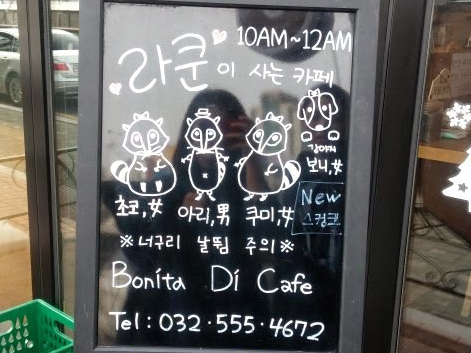 10AM~12AM
라쿤이 사는 카페
강아지
초코,女 아리,男 쿠미,女 보니,女
New
스컹크
※너구리 날뜀 주의※
Bonita Di Cafe
Tel : 032 · 555 · 4672